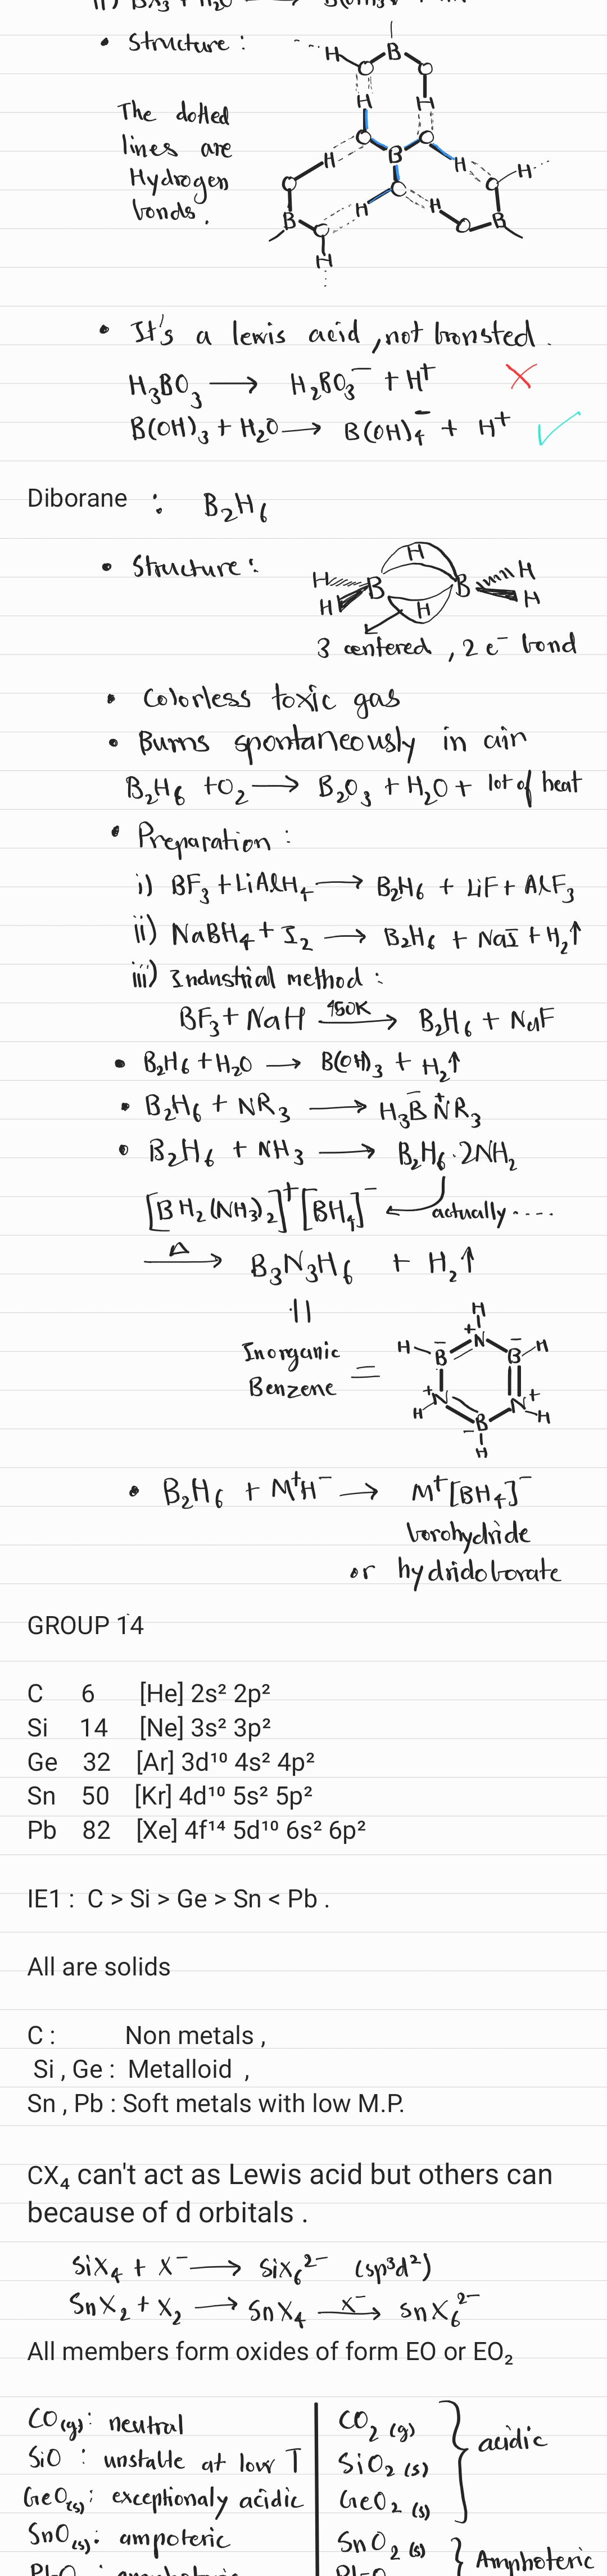 • Structure :
The dotted
lines are
Hydrogen
bonds.
• It's a lewis acid, not bronsted.
H₃BO₃ ⟶ H₂BO₃⁻ + H⁺ ✗
B(OH)₃ + H₂O ⟶ B(OH)₄⁻ + H⁺ ✓
Diborane : B₂H₆
• Structure :
H H B H H B H H
3 centered, 2 e⁻ bond
• Colorless toxic gas
• Burns spontaneously in air
B₂H₆ + O₂ ⟶ B₂O₃ + H₂O + lot of heat
• Preparation :
i) BF₃ + LiAlH₄ ⟶ B₂H₆ + LiF + AlF₃
ii) NaBH₄ + I₂ ⟶ B₂H₆ + NaI + H₂↑
iii) Industrial method :
BF₃ + NaH 450K ⟶ B₂H₆ + NaF
• B₂H₆ + H₂O ⟶ B(OH)₃ + H₂↑
• B₂H₆ + NR₃ ⟶ H₃B⁻N⁺R₃
• B₂H₆ + NH₃ ⟶ B₂H₆·2NH₂
[BH₂(NH₃)₂]⁺[BH₄]⁻ ⟵ actually ....
Δ ⟶ B₃N₃H₆ + H₂↑
Inorganic
Benzene =
• B₂H₆ + M⁺H⁻ ⟶ M⁺[BH₄]⁻
borohydride
or hydridoborate
GROUP 14
C 6 [He] 2s² 2p²
Si 14 [Ne] 3s² 3p²
Ge 32 [Ar] 3d¹⁰ 4s² 4p²
Sn 50 [Kr] 4d¹⁰ 5s² 5p²
Pb 82 [Xe] 4f¹⁴ 5d¹⁰ 6s² 6p²
IE1 : C > Si > Ge > Sn < Pb .
All are solids
C : Non metals ,
Si , Ge : Metalloid ,
Sn , Pb : Soft metals with low M.P.
CX₄ can't act as Lewis acid but others can
because of d orbitals .
SiX₄ + X⁻ ⟶ SiX₆²⁻ (sp³d²)
SnX₂ + X₂ ⟶ SnX₄ X⁻ ⟶ SnX₆²⁻
All members form oxides of form EO or EO₂
CO(g) : neutral
SiO : unstable at low T
GeO(s) : exceptionaly acidic
SnO(s) : ampoteric
CO₂ (g)
SiO₂ (s)
GeO₂ (s)
acidic
SnO₂ (s)
Amphoteric